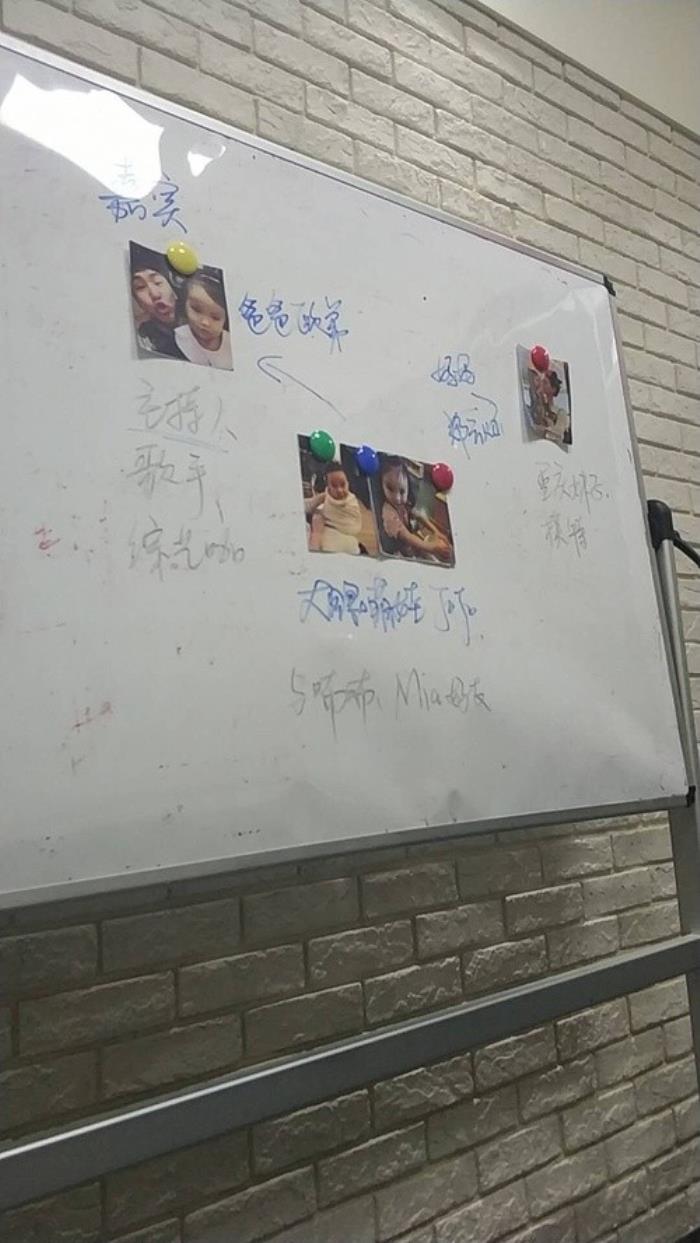 嘉实
爸爸欧弟
妈妈
郑云灿
主持人、
歌手、
综艺咖
重庆妹子、
模特
大眼萌娃 JoJo
与咘咘、Mia好友